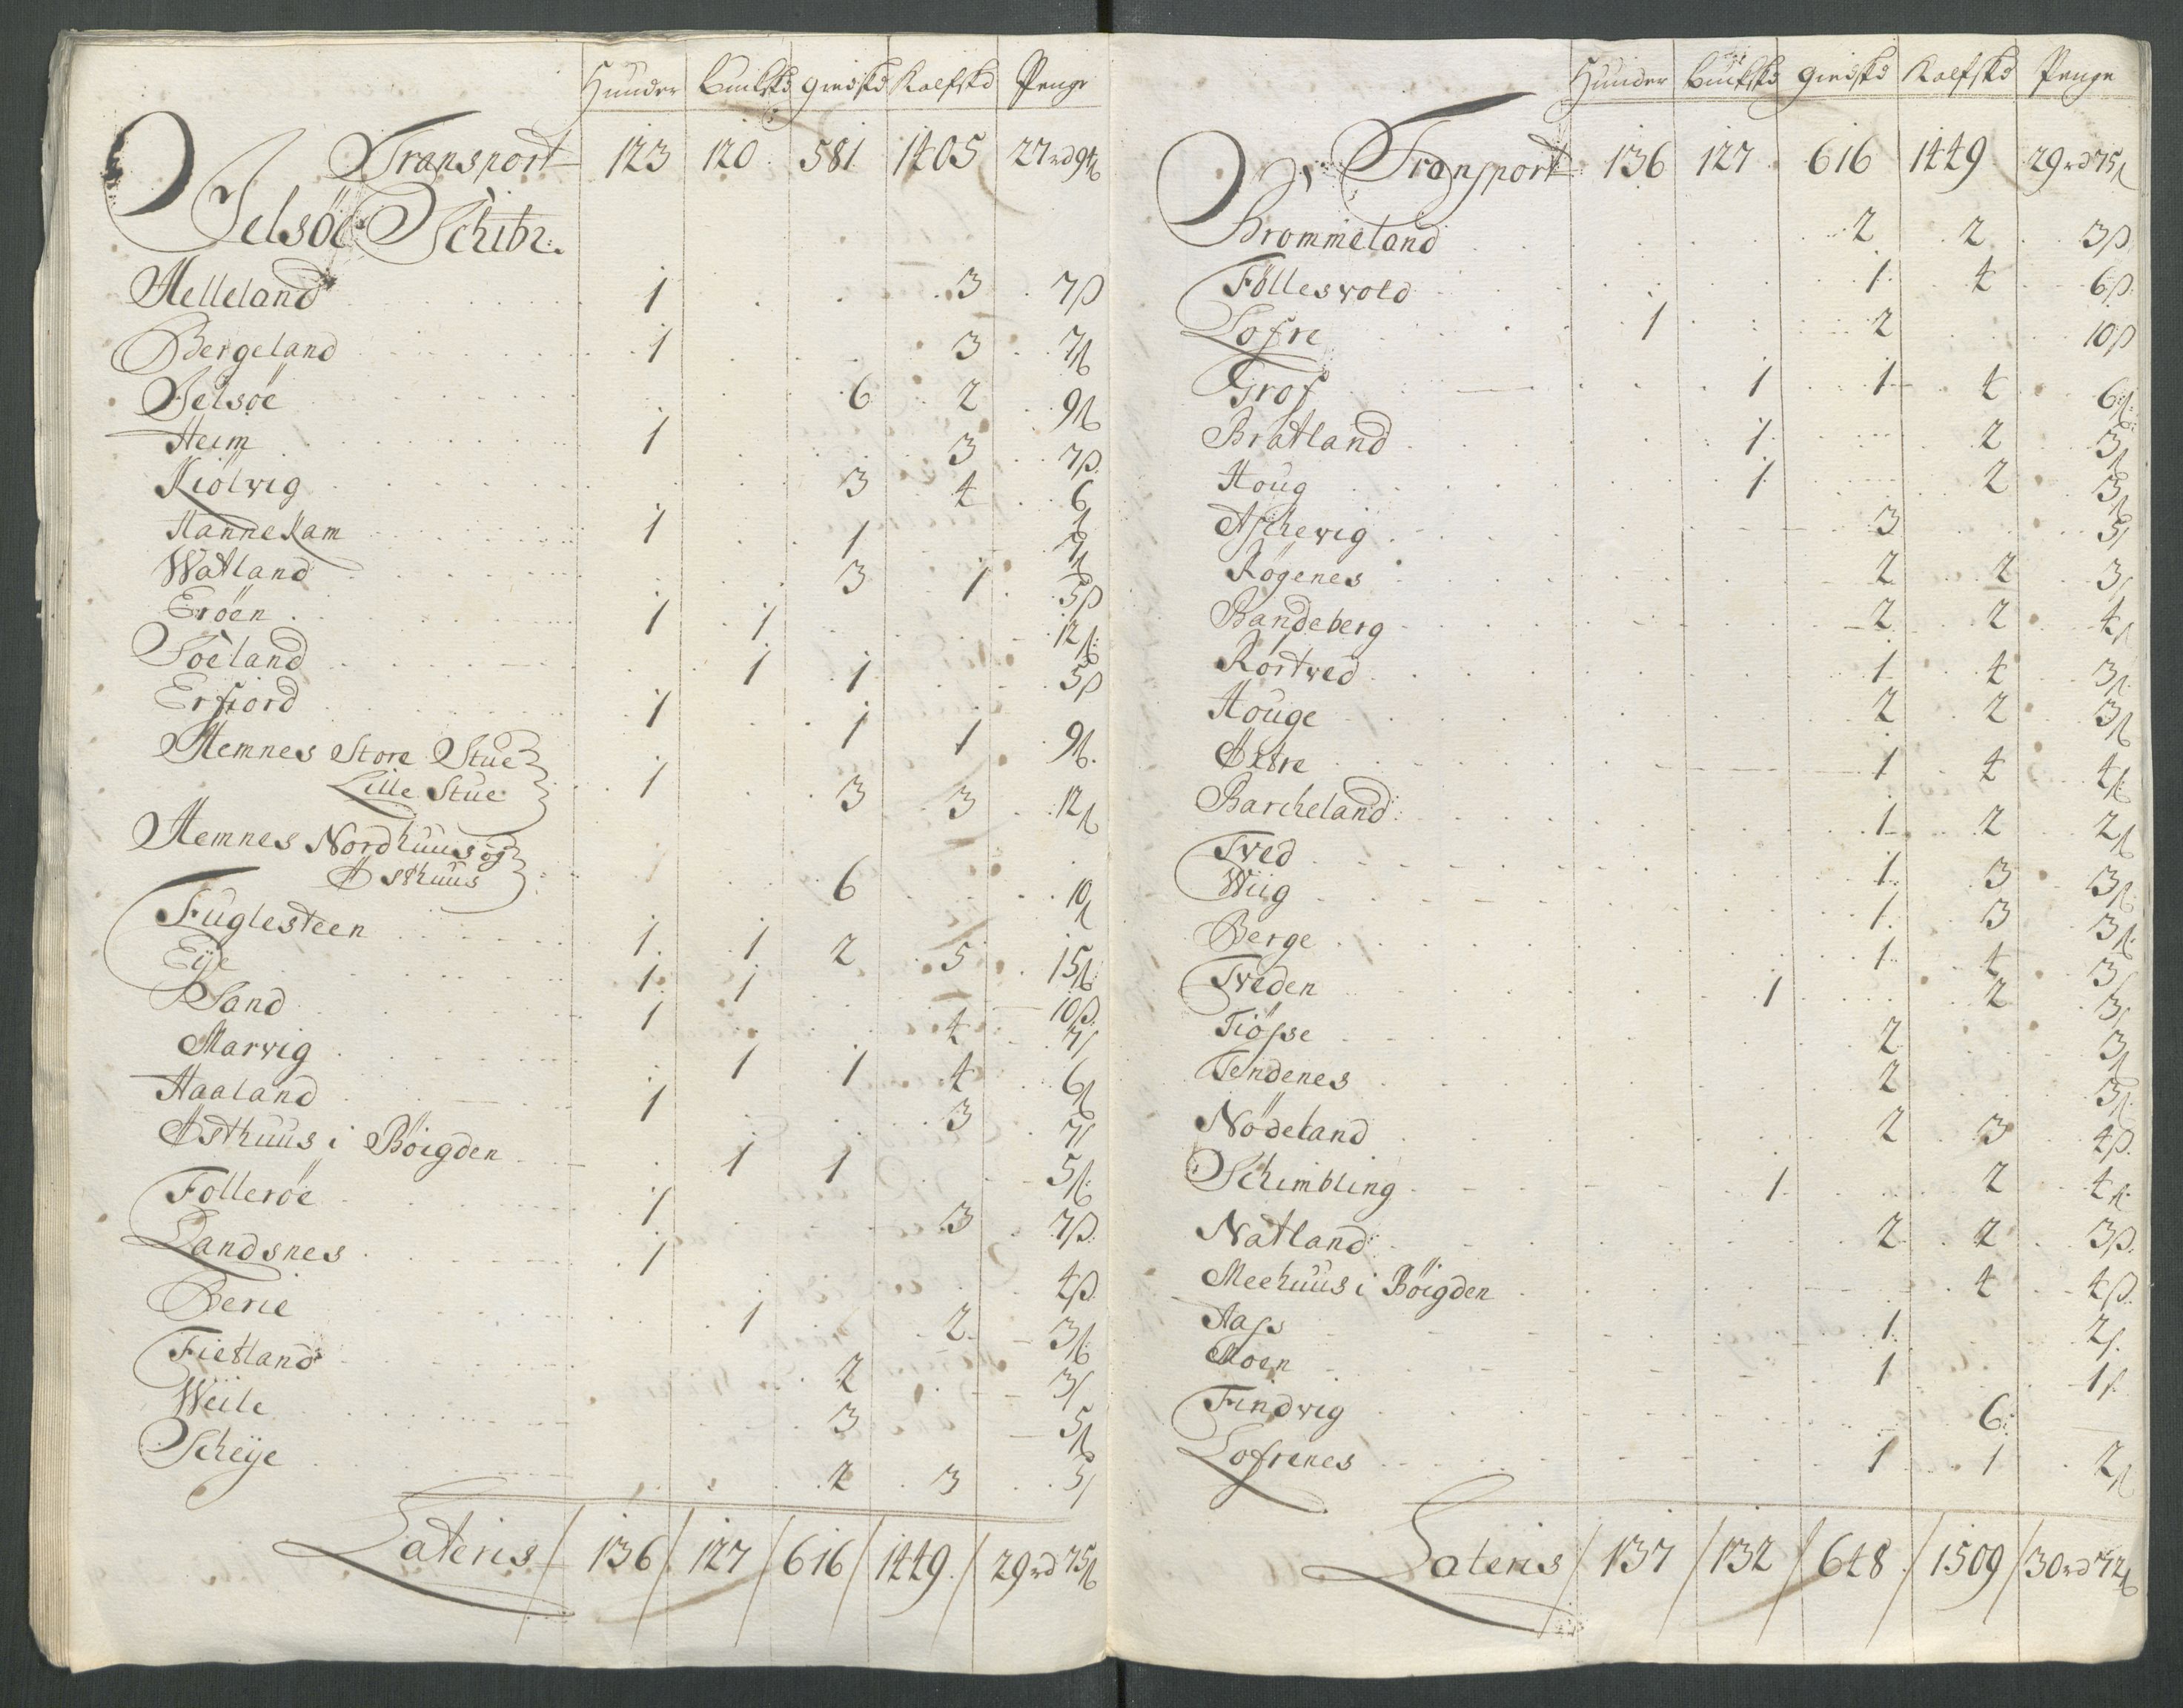 Hunder Buckskd giedskd Kalfskd Penge
Transport 123 120 581 1405 27rd 94ß
Jelsöe Schibr.
Helleland 1 3 7ß
Bergeland 1 3 7ß
Jelsöe 6 2 9ß
Heim 1 3 7ß
Kiölvig 3 4 6ß
Hannekam 1 1 7ß
Watland 3 1 5ß
Eröen 1 1 12ß
Söeland 1 1 5ß
Erfiord 1 1 1 9ß
Hemnes Store Stue
Lille Stue 1 3 3 12ß
Hemnes Nordhuus og
Østhuus 6 10ß
Fuglesteen 1 1 2 5 15ß
Eije 1 1 10ß
Sand 1 4 7ß
Marvig 1 1 4 6ß
Haaland 1 3 7ß
Østhuus i Böigden 1 1 5ß
Folleröe 1 3 7ß
Landsnes 1 4ß
Berie 1 2 3ß
Fietland 2 3ß
Weile 3 5ß
Scheije 2 3 5ß
Lateris 136 127 616 1449 29rd 75ß
Hunder Buckskd giedskd Kalfskd Penge
Transport 136 127 616 1449 29rd 75ß
Brommeland 2 2 3ß
Föllesvold 1 4 6ß
Lofre 1 2 10ß
Grof 1 1 4 6ß
Bratland 1 2 3ß
Houg 1 2 3ß
Aschevig 3 5ß
Rögenes 2 2 3ß
Bandeberg 2 2 4ß
Röstved 1 4 3ß
Houge 2 2 3ß
Øxtre 1 4 4ß
Barcheland 1 2 2ß
Tved 1 3 3ß
Wiig 1 3 3ß
Berge 1 4 3ß
Tveden 1 2 3ß
Tiösse 2 3ß
Tendenes 2 3ß
Nödeland 2 3 4ß
Schimbling 1 2 4ß
Natland 2 2 3ß
Meehuus i Böigden 4 4ß
Aass 1 2ß
Moen 1 1ß
Findvig 6
Lofrenes 1 1 2ß
Lateris 137 132 648 1509 30rd 72ß